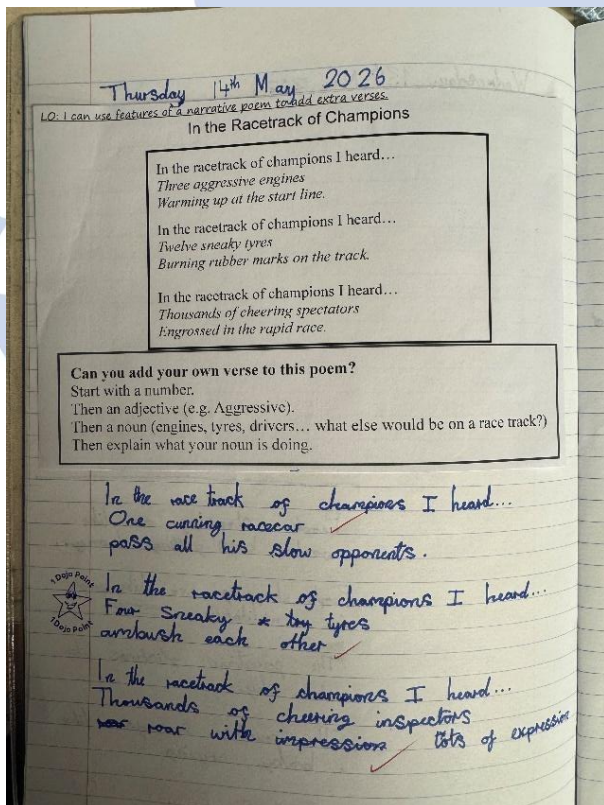 Thursday 14th May 2026
LO: I can use features of a narrative poem to add extra verses.
In the Racetrack of Champions
In the racetrack of champions I heard…
Three aggressive engines
Warming up at the start line.
In the racetrack of champions I heard…
Twelve sneaky tyres
Burning rubber marks on the track.
In the racetrack of champions I heard…
Thousands of cheering spectators
Engrossed in the rapid race.
Can you add your own verse to this poem?
Start with a number.
Then an adjective (e.g. Aggressive).
Then a noun (engines, tyres, drivers… what else would be on a race track?)
Then explain what your noun is doing.
In the race track of champions I heard...
One cunning racecar
pass all his slow opponents.
1 Dojo Point
In the racetrack of champions I heard...
Four sneaky * tyres
ambush each other
1 Dojo Point
In the racetrack of champions I heard...
Thousands of cheering inspectors
roar with impression lots of expression